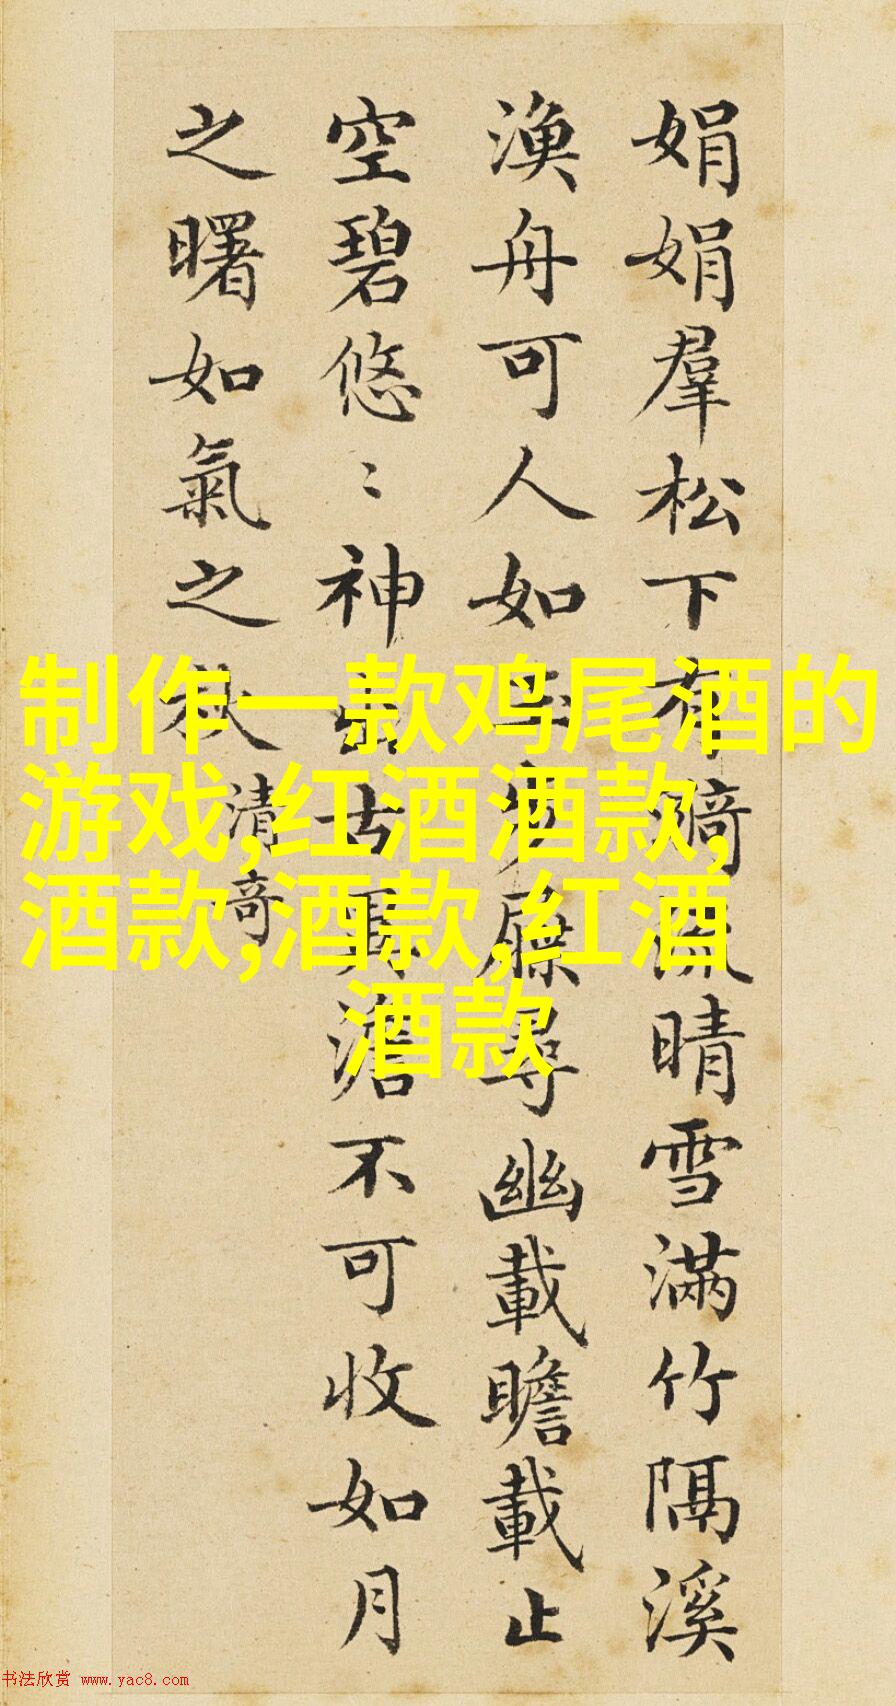 娟娟羣松下有漪流晴雪滿竹隔溪
漁舟可人如玉步屧尋幽載瞻載止
空碧悠〻神出古異澹不可收如月
之曙如氣之秋
清奇
制作一款鸡尾酒的
游戏,红酒酒款,
酒款,酒款,红酒
酒款
书法欣赏 www.yac8.com